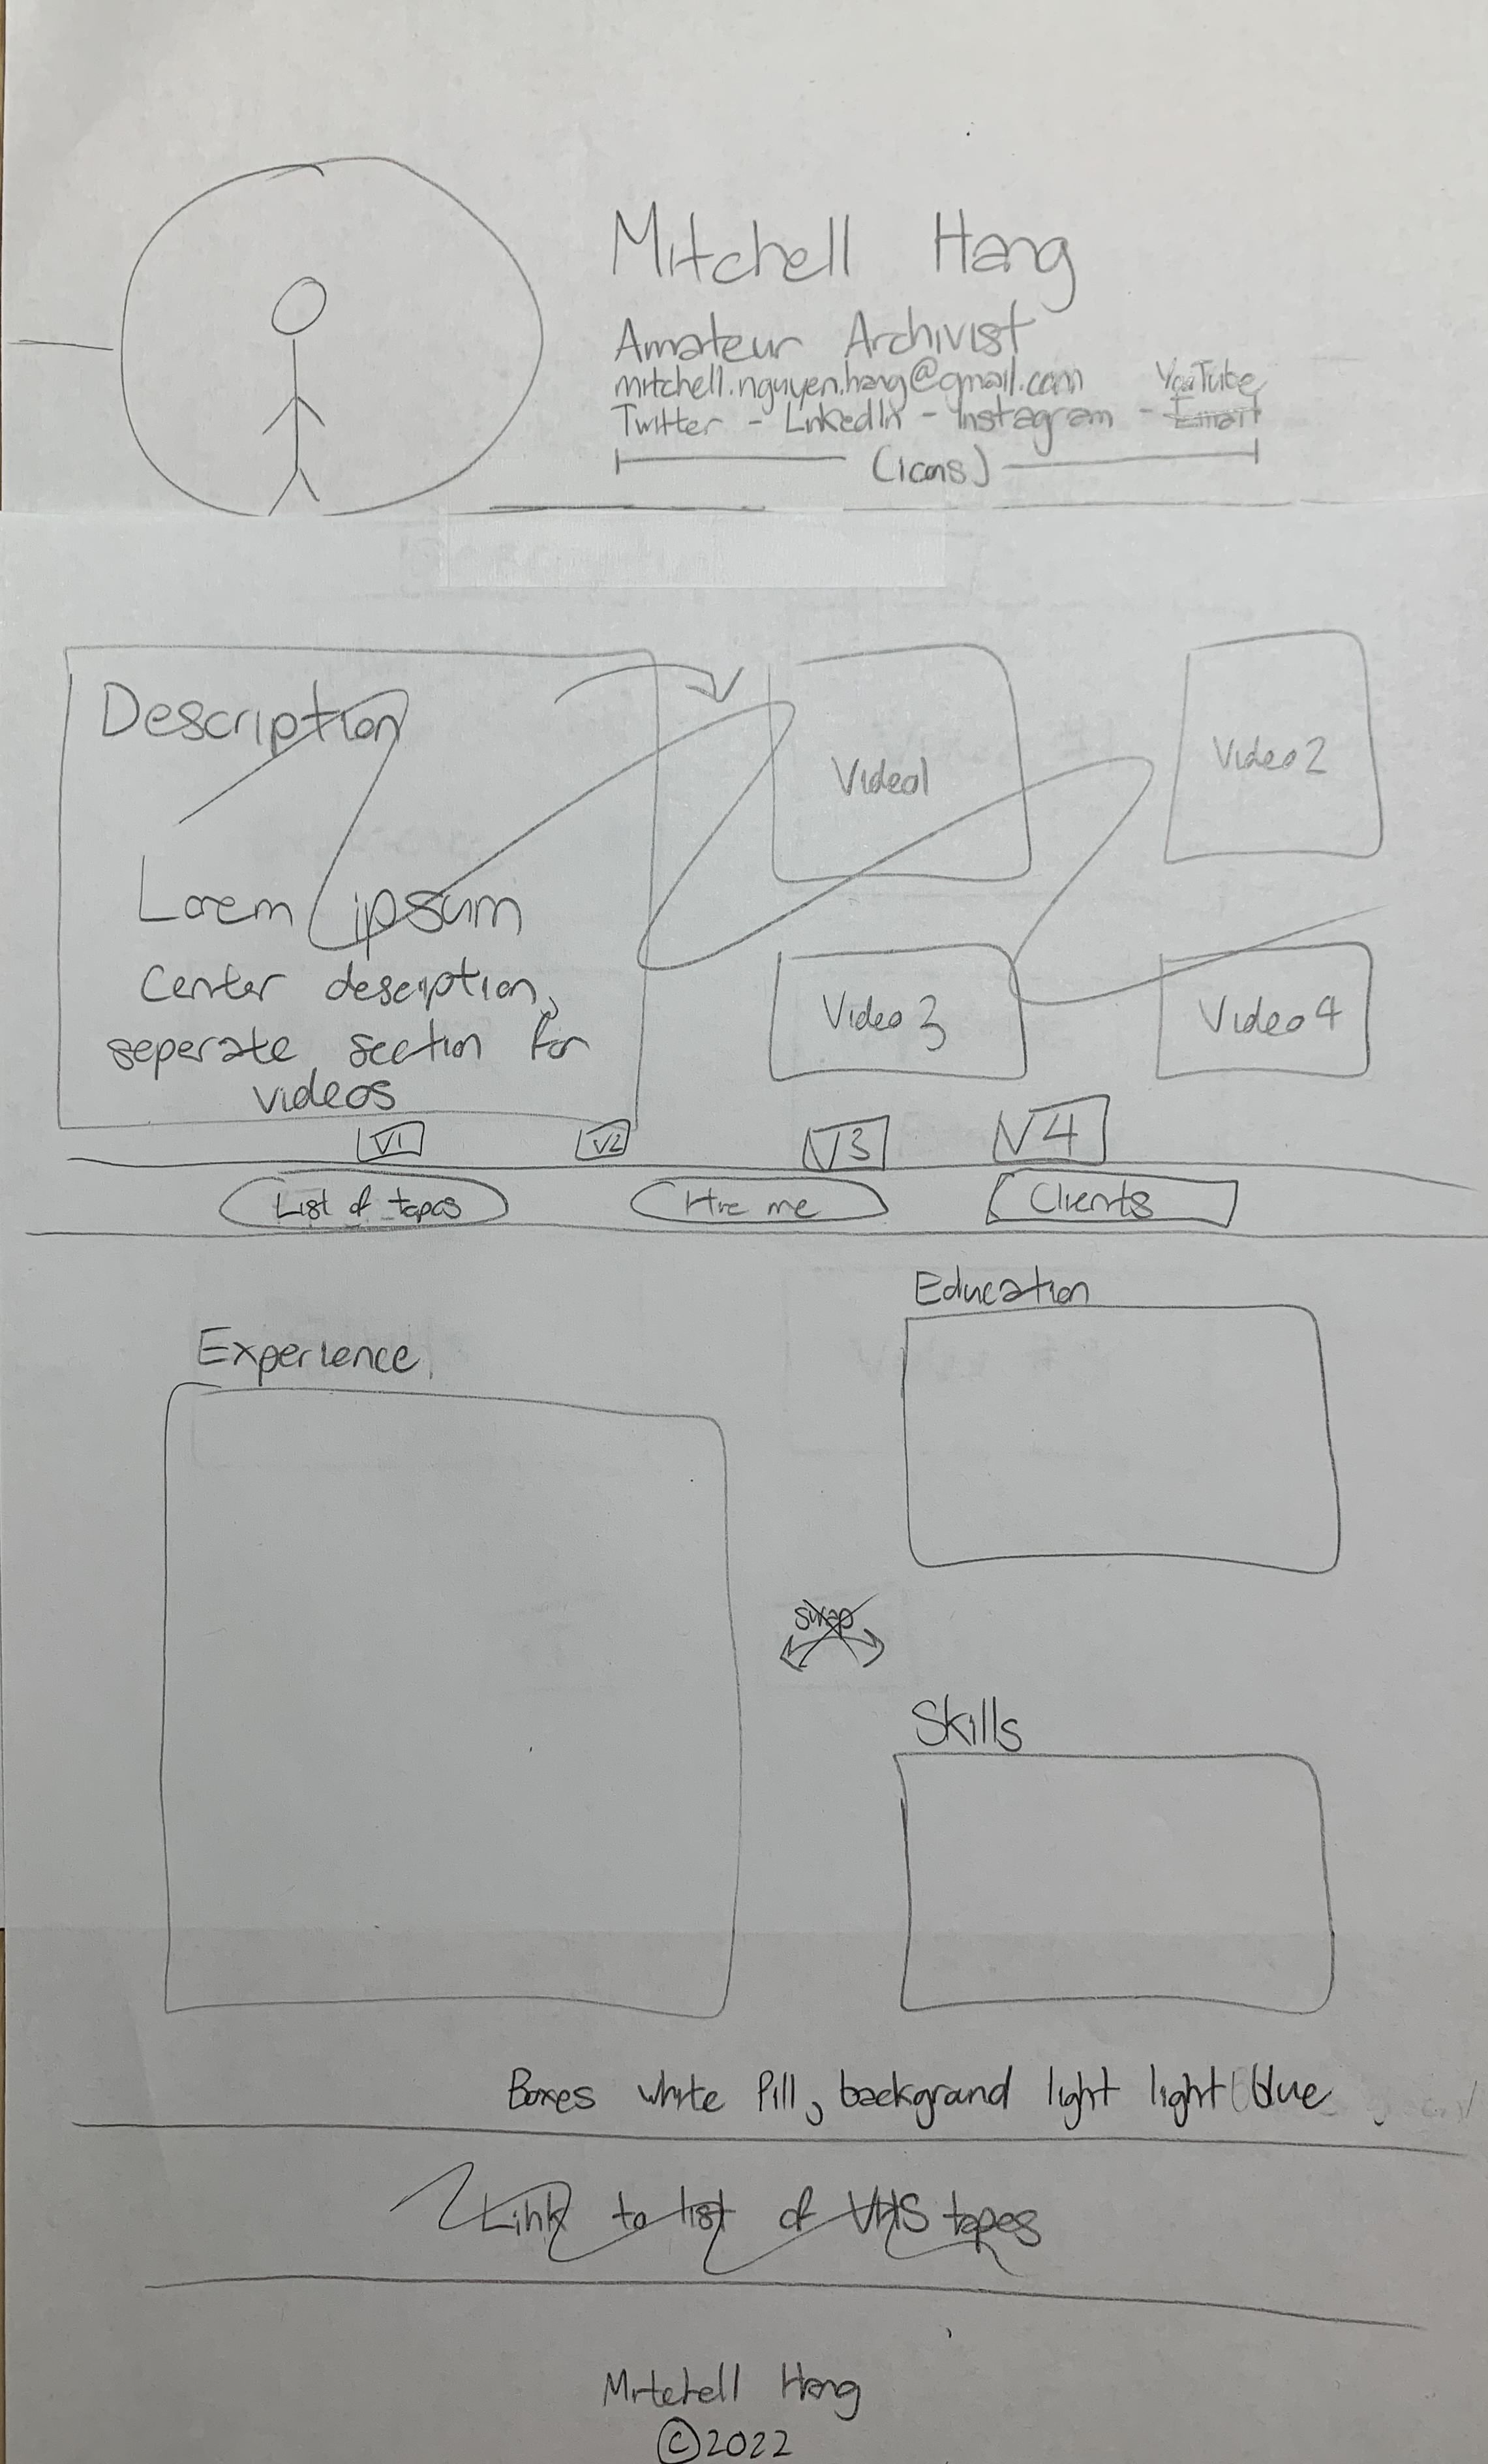 Mitchell Hang
Amateur Archivist
mitchell.nguyen.hang@gmail.com YouTube
Twitter - LinkedIn - Instagram - Email
(icons)
Description
Video1
Video 2
Lorem ipsum
Center description,
seperate section for
videos
Video 3
Video 4
V1
V2
V3
V4
List of tapes
Hire me
Clients
Education
Experience
swap
Skills
Boxes white Pill, background light light blue
Link to list of VHS tapes
Mitchell Hang
©2022